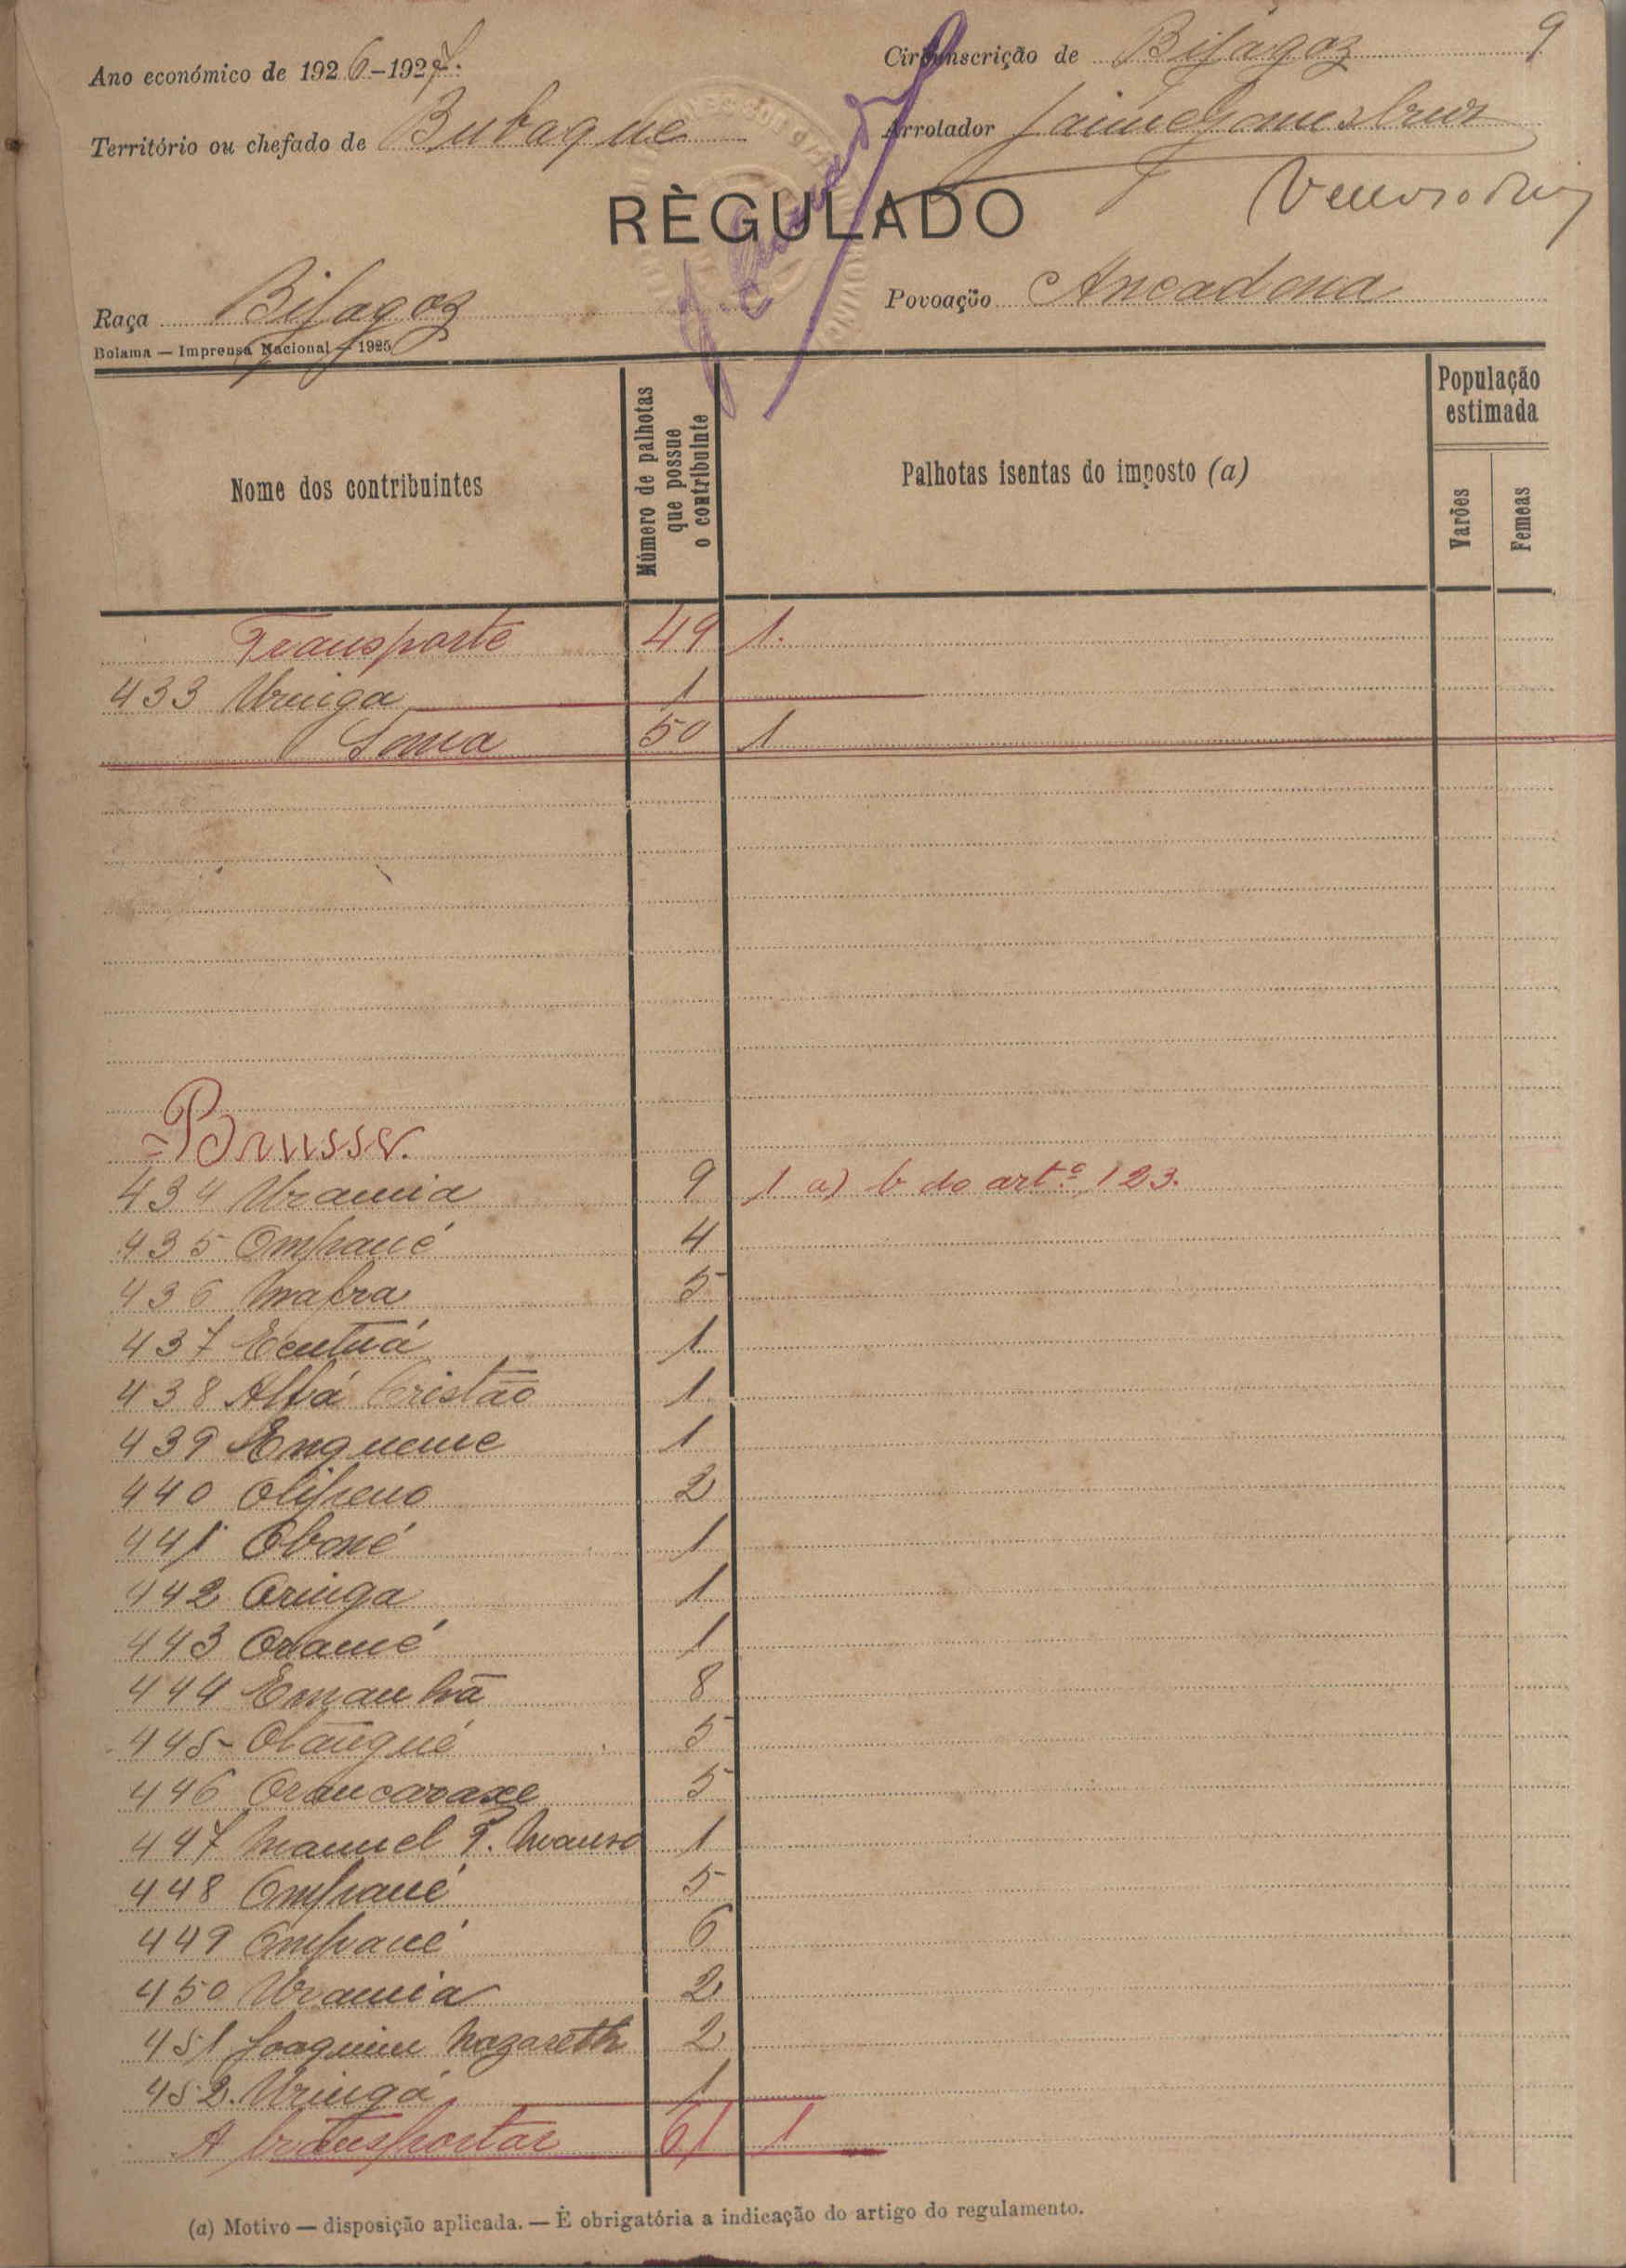 9
Ano económico de 1926-1927.
Circunscrição de Bijagoz
Território ou chefado de Bubaque
Arrolador Jaime Gomes
RÈGULADO
Raça Bijagoz
Povoação Ancadona
Bolama — Imprensa Nacional — 1925
Nome dos contribuintes
Número de palhotas que possue o contribuinte
Palhotas isentas do imposto (a)
População estimada
Varões
Femeas
Transporte 49 1.
433 Uringa 1
Soma 50 1
=Brusse.
434 Urania 9 1 a) b do artº 123.
435 Ompané 4
436 Mafra 5
437 Ecutuá 1
438 Albá Cristão 1
439 Enqueme 1
440 Olipeno 2
441 Oboné 1
442 Oringa 1
443 Oramé 1
444 Emanhã 8
445 Otangué 5
446 Orancaraxe 5
447 Manuel 1
448 Ompané 5
449 Ompané 6
450 Urania 2
451 Joaquim Nazareth 2
452. Uringá 1
A transportar 61 1
(a) Motivo — disposição aplicada. — É obrigatória a indicação do artigo do regulamento.